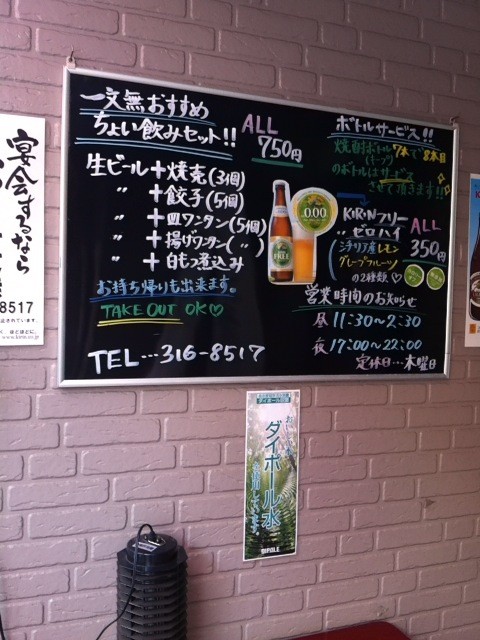 一文無おすすめ
ちょい飲みセット!!
ALL
750円
生ビール+焼売(3個)
〃 +餃子(5個)
〃 +皿ワンタン(5個)
〃 +揚げワンタン(〃)
〃 +白もつ煮込み
お持ち帰りも出来ます。
TAKE OUT OK♡
TEL…316-8517
ボトルサービス!!
焼酎ボトル7本で8本目
(キープ)
のボトルはサービス
させて頂きます!!
0.00
FREE
KIRINフリー
〃ゼロハイ
ALL
350円
レモン
グレープフルーツ
の2種類♡
営業時間のお知らせ
昼 11:30~2:30
夜 17:00~22:00
定休日…木曜日
宴会するなら
8517
ダイポール水
DIPOLE